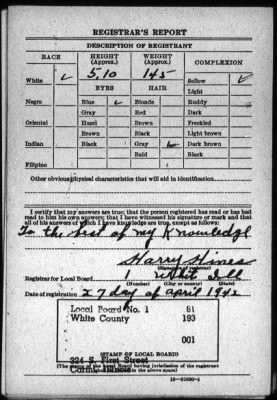 REGISTRAR'S REPORT
DESCRIPTION OF REGISTRANT
RACE
HEIGHT
(Approx.)
WEIGHT
(Approx.)
COMPLEXION
White ✓
5,10
145
Sallow ✓
EYES
HAIR
Light
Negro
Blue ✓
Blonde
Ruddy
Gray
Red
Dark
Oriental
Hazel
Brown
Freckled
Brown
Black
Light brown
Indian
Black
Gray ✓
Dark brown
Bald
Black
Filipino
Other obvious physical characteristics that will aid in identification
I certify that my answers are true; that the person registered has read or has had
read to him his own answers; that I have witnessed his signature or mark and that
all of his answers of which I have knowledge are true, except as follows:
To the best of my Knowledge
Harry Hines
(Signature of registrar)
Registrar for Local Board 1 White Ill
(Number) (City or county) (State)
Date of registration 27 day of april 1942
Local Board No. 1 61
White County 193
001
224 S. First Street
Carmi, Illinois
(STAMP OF LOCAL BOARD)
(The stamp of the Local Board having jurisdiction of the registrant
shall be placed in the above space)